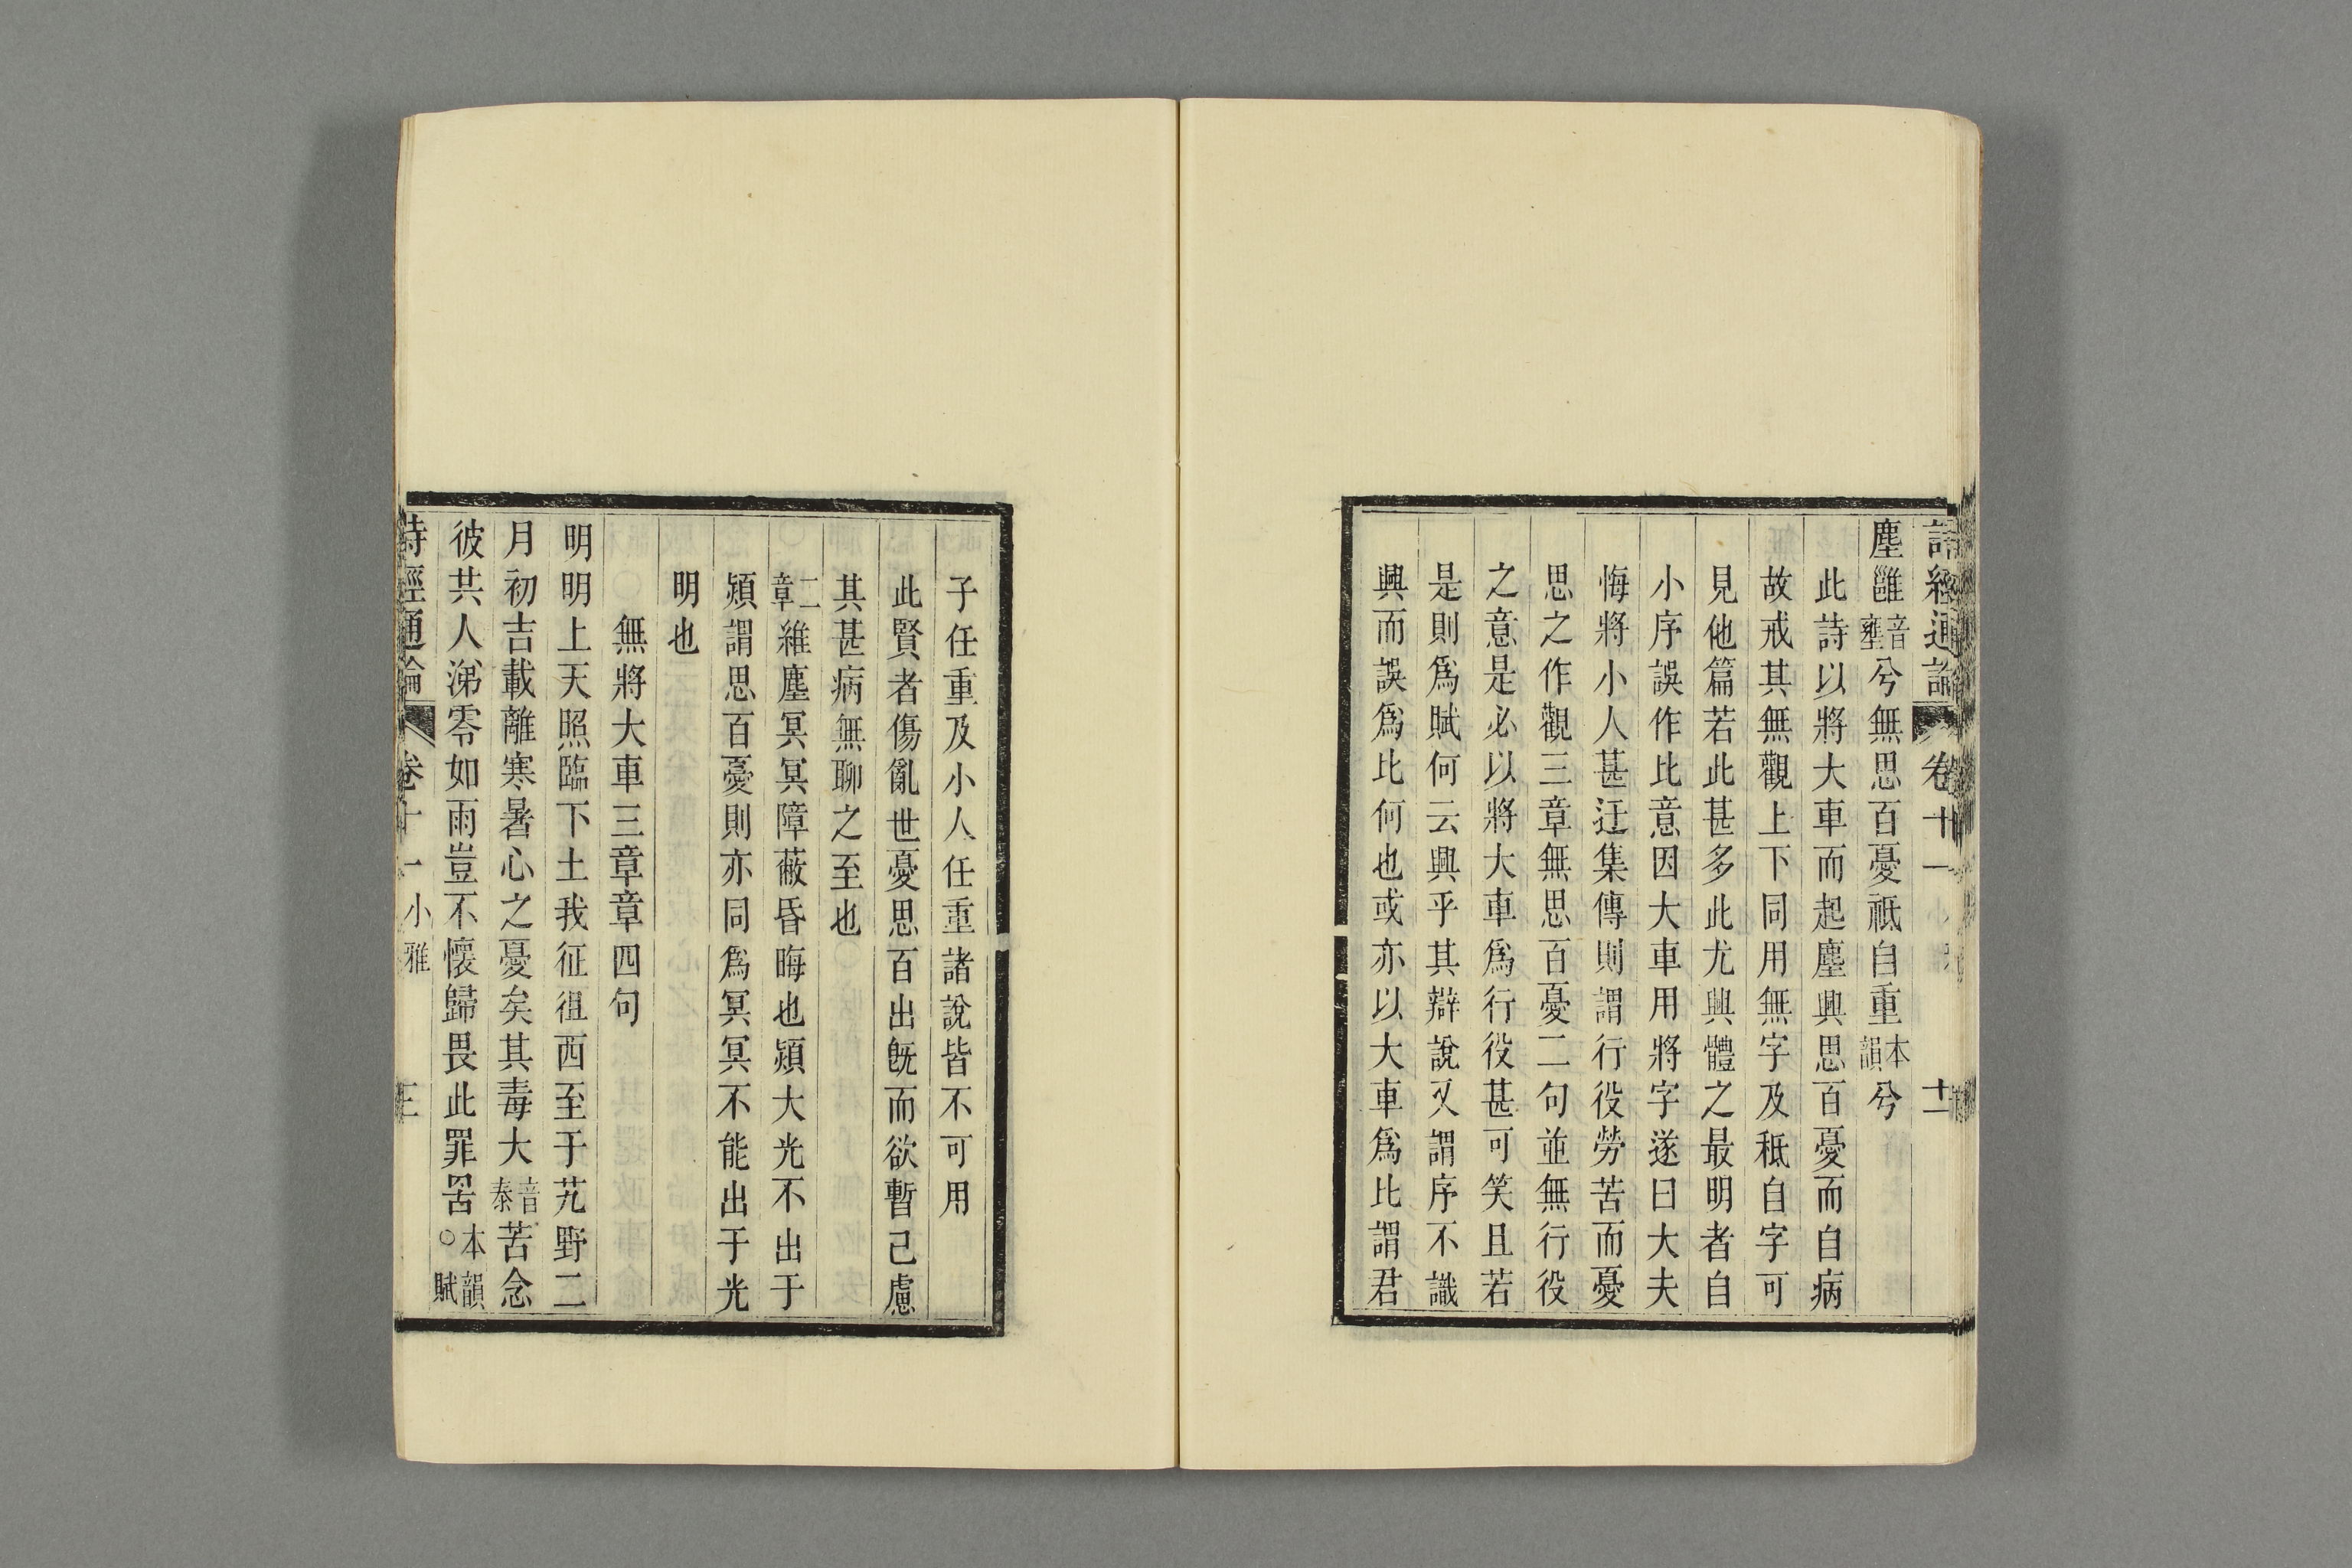 詩經通論 卷十一 十二
塵雝音壅兮無思百憂祗自重本韻兮
此詩以將大車而起塵興思百憂而自病
故戒其無觀上下同用無字及祗自字可
見他篇若此甚多此尤興體之最明者自
小序誤作比意因大車用將字遂曰大夫
悔將小人甚迂集傳則謂行役勞苦而憂
思之作觀三章無思百憂二句並無行役
之意是必以將大車爲行役甚可笑且若
是則爲賦何云興乎其辯說又謂序不識
興而誤爲比何也或亦以大車爲比謂君
子任重及小人任重諸說皆不可用
此賢者傷亂世憂思百出旣而欲暫己慮
其甚病無聊之至也
二章維塵冥冥障蔽昏晦也熲大光不出于
熲謂思百憂則亦同爲冥冥不能出于光
明也
無將大車三章章四句
明明上天照臨下土我征徂西至于艽野二
月初吉載離寒暑心之憂矣其毒大音泰苦念
彼共人涕零如雨豈不懷歸畏此罪罟本韻○賦
詩經通論 卷十一 小雅